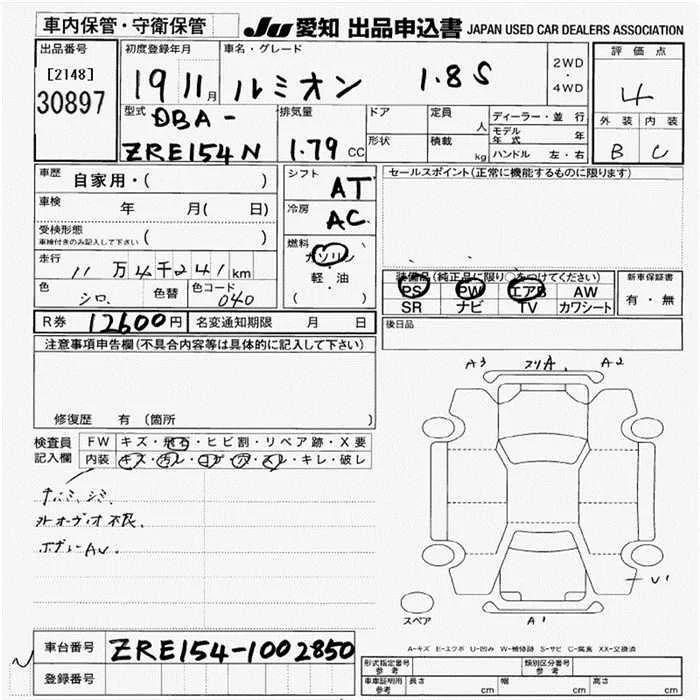 車内保管・守衛保管
JU 愛知 出品申込書 JAPAN USED CAR DEALERS ASSOCIATION
出品番号
[2148]
30897
初度登録年月
19 11月
車名・グレード
ルミオン 1.8S
2WD
・
4WD
評価点
4
外装 内装
B C
型式
DBA-
ZRE154N
排気量
1.79 CC
ドア
形状
定員
人
積載
kg
ディーラー・並行
モデル年式 年
ハンドル 左・右
車歴 自家用・( )
車検 年 月( 日)
受検形態
車検付きのみ記入して下さい ( )
走行
11万4千241km
色 シロ. 色替 色コード 040
シフト AT
冷房 AC
燃料
ガソリン
軽・油
( )
セールスポイント(正常に機能するものに限ります)
装備品(純正品に限り○をつけてください)
PS PW エアB AW
SR ナビ TV カワシート
新車保証書
有・無
後日品
R券 12600円 名変通知期限 月 日
注意事項申告欄(不具合内容等は具体的に記入して下さい)
修復歴 有 (箇所 )
検査員記入欄
FW キズ・飛石・ヒビ割・リペア跡・X要
内装 キズ・汚レ・コゲ・穴・スレ・キレ・破レ
シミ.
オーディオ不良.
ボデーAU.
A3 フリA. A2
U1
A1
スペア
A-キズ E-エクボ U-凹み W-補修跡 S-サビ C-腐食 XX-交換済
車台番号 ZRE154-1002850
登録番号
形式指定番号 参考
類別区分番号 参考
車庫証明用 参考 長さ cm 幅 cm 高さ cm